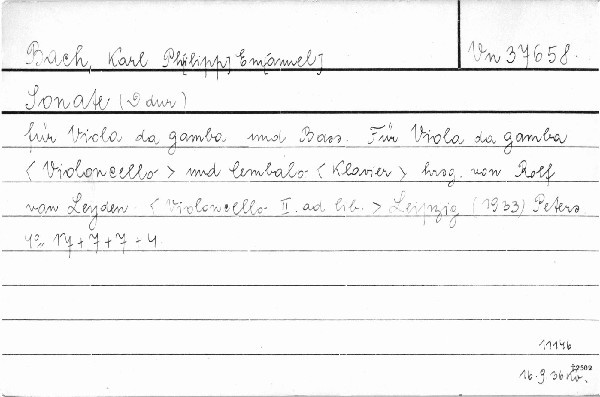 Bach, Karl Ph[ilipp] Em[anuel] Vn 37658.
Sonate (D dur)
für Viola da gamba und Bass. Für Viola da gamba
< Violoncello > und Cembalo < Klavier > hrsg. von Rolf
van Leyden. < Violoncello II. ad lib. > Leipzig (1933) Peters
4° 17 + 7 + 7 + 4.
1.1146
22502
16. 9 36 Kv.